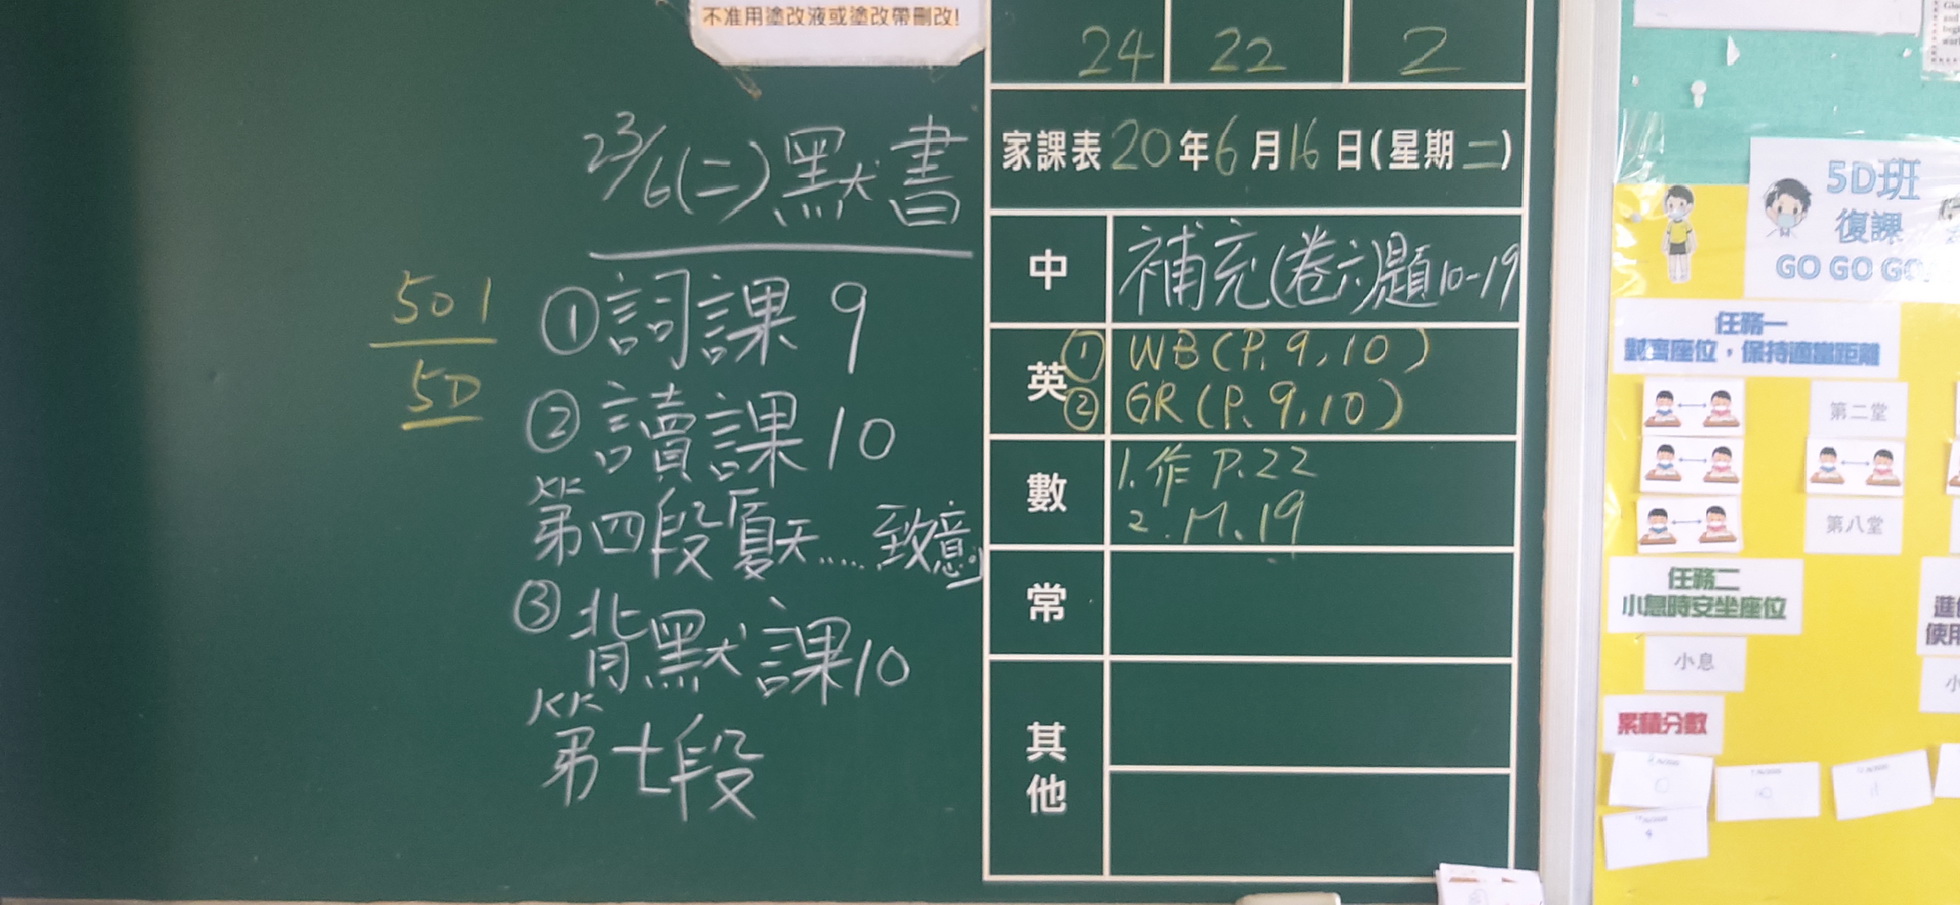 不准用塗改液或塗改帶刪改!
24 22 2
家課表 20年6月16日(星期二)
中 補充(卷六)題10-19
英 ① WB (P. 9, 10)
② GR (P. 9, 10)
數 1. 作 P.22
2. M.19
常
其他
23/6(二)默書
501
5D
①詞課 9
②讀課 10
第四段夏天……致意。」
③背默課10
第七段
5D班
復課
GO GO GO
任務一
對齊座位，保持適當距離
第二堂
第八堂
任務二
小息時安坐座位
小息
累積分數